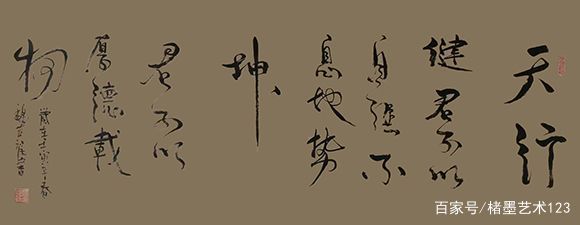 天行
健君子以
自強不
息地勢
坤
君子以
厚德載
物
歲在壬寅年春
百家号/楮墨艺术123